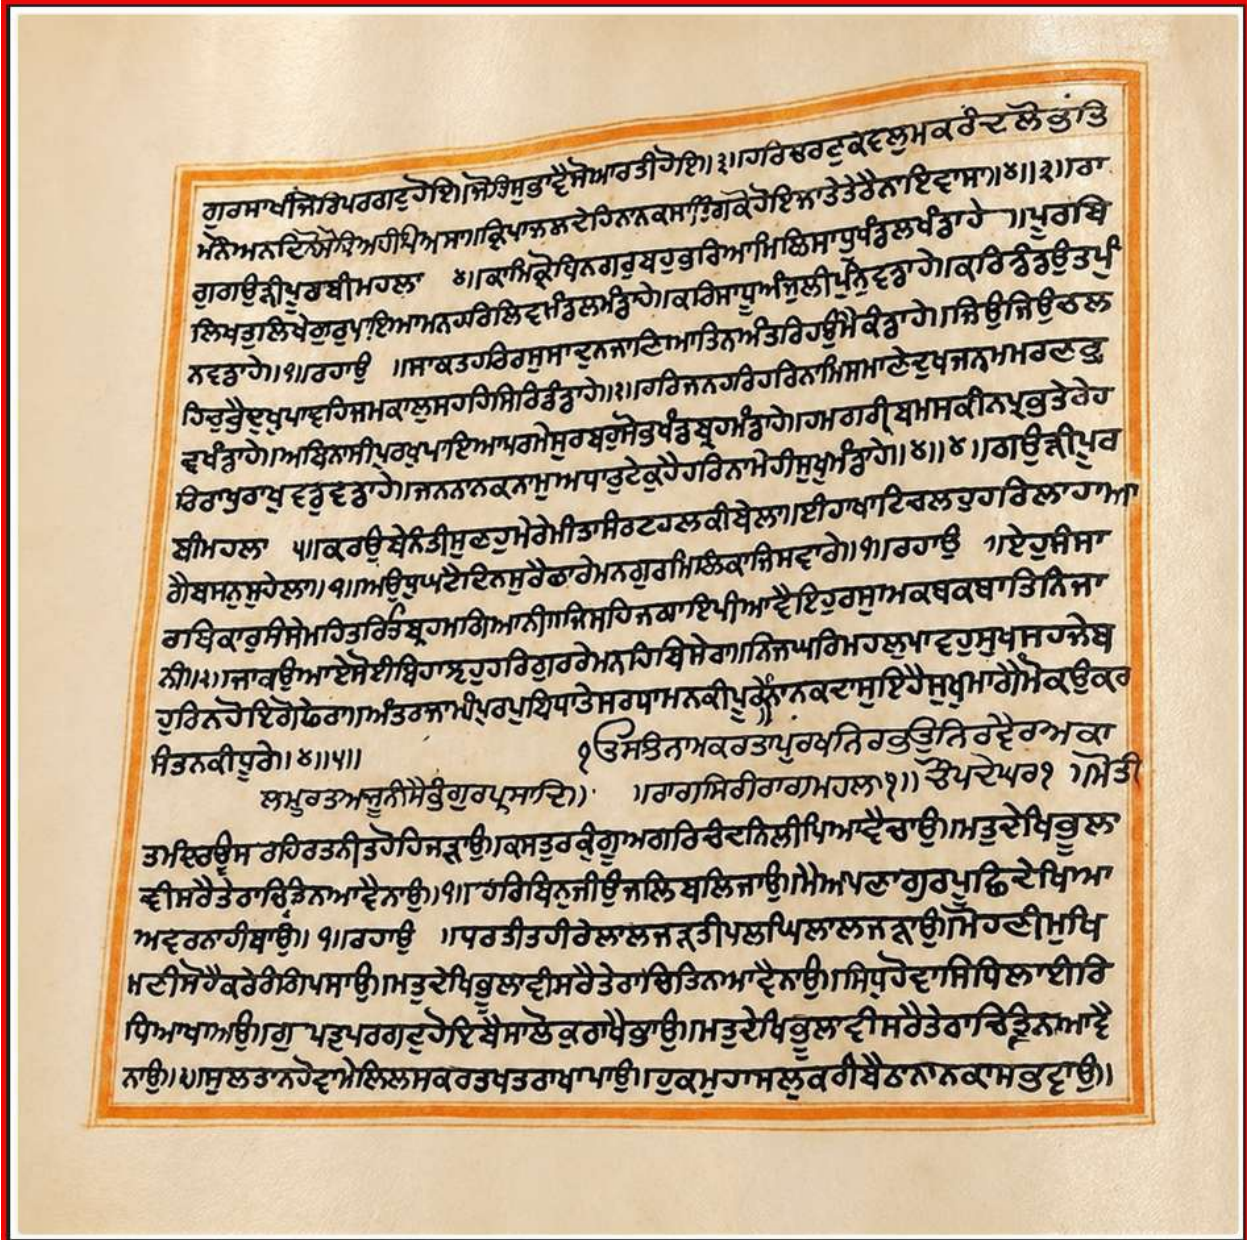 ਗੁਰਸਾਖੀਜੋਤਿਪਰਗਟੁਹੋਇ॥ਜੋਤਿਸੁਭਾਵੈਸੋਆਰਤੀਹੋਇ॥੩॥ਹਰਿਚਰਣਕਵਲਮਕਰੰਦਲੋਭਤਿ
ਮਨੋਅਨਦਿਨੋਮੋਹਿਅਹੀਪਿਆਸਾ॥ਕ੍ਰਿਪਾਜਲਦੇਹਿਨਾਨਕਸਾਰਿੰਗਕੋਹੋਇਜਾਤੇਤੇਰੈਨਾਇਵਾਸਾ॥੪॥੩॥ਰਾ
ਗੁਗਉੜੀਪੂਰਬੀਮਹਲਾ ੪॥ਕਾਮਿਕ੍ਰੋਧਿਨਗਰੁਬਹੁਭਰਿਆਮਿਲਿਸਾਧੂਖੰਡਲਖੰਡਾਹੇ ॥ਪੂਰਬਿ
ਲਿਖਤੁਲਿਖੇਗੁਰੁਪਾਇਆਮਨਹਰਿਲਿਵਖੰਡਲਮੰਡਾਹੇ॥ਕਰਿਸਾਧੂਅੰਜੁਲੀਪੁੰਨੁਵਡਾਹੇ॥ਕਰਿਡੰਡਉਤਪੁੰ
ਨਵਡਾਹੇ॥੧॥ਰਹਾਉ ॥ਸਾਕਤਹਰਿਰਸੁਸਾਦੁਨਜਾਣਿਆਤਿਨਾਅੰਤਰਿਹਉਮੈਕੰਡਾਹੇ॥ਜਿਉਜਿਉਚਲ
ਹਿਚੁਭੈਦੁਖੁਪਾਵਹਿਜਮਕਾਲੁਸਹਹਿਸਿਰਿਡੰਡਾਹੇ॥੨॥ਹਰਿਜਨਹਰਿਹਰਿਨਾਮਿਸਮਾਣੇਦੁਖਜਨਮਮਰਣਭ
ਵਖੰਡਾਹੇ॥ਅਬਿਨਾਸੀਪੁਰਖੁਪਾਇਆਪਰਮੇਸੁਰਬਹੁਸੋਭਖੰਡਬ੍ਰਹਮੰਡਾਹੇ॥ਹਮਗਰੀਬਮਸਕੀਨਪ੍ਰਭਤੇਰੇਹ
ਰਿਰਾਖੁਰਾਖੁਵਡੁਵਡਾਹੇ॥ਜਨਨਾਨਕਨਾਮੁਅਧਾਰੁਟੇਕਹੈਹਰਿਨਾਮੇਹੀਸੁਖੁਮੰਡਾਹੇ॥੪॥੪॥ਗਉੜੀਪੂਰ
ਬੀਮਹਲਾ ੫॥ਕਰਉਬੇਨੰਤੀਸੁਣਹੁਮੇਰੇਮੀਤਾਸੰਤਟਹਲਕੀਬੇਲਾ॥ਈਹਾਖਾਟਿਚਲਹੁਹਰਿਲਾਹਾਆ
ਗੈਬਸਨੁਸੁਹੇਲਾ॥੧॥ਅਉਧਘਟੈਦਿਨਸੁਰੈਣਾਰੇਮਨਗੁਰਮਿਲਿਕਾਜਿਸਵਾਰੇ॥੧॥ਰਹਾਉ ॥ਏਹੁਸੰਸਾ
ਰਬਿਕਾਰੁਸੰਸੇਮਹਿਤਰਿਓਬ੍ਰਹਮਗਿਆਨੀ॥ਜਿਸਹਿਜਗਾਇਪੀਆਵੈਇਹੁਰਸੁਅਕਥਕਥਾਤਿਨਿਜਾ
ਨੀ॥੨॥ਜਾਕਉਆਏਸੋਈਬਿਹਾਝਹੁਹਰਿਗੁਰਰੇਮਨਹਿਬਸੇਰਾ॥ਨਿਜਘਰਿਮਹਲੁਪਾਵਹੁਸੁਖਸਹਜੇਬ
ਹੁਰਿਨਹੋਇਗੋਫੇਰਾ॥ਅੰਤਰਜਾਮੀਪੁਰਖੁਬਿਧਾਤੇਸਰਧਾਮਨਕੀਪੂਰੇ॥ਨਾਨਕਦਾਸੁਇਹੈਸੁਖੁਮਾਗੈਮੋਕਉਕਰ
ਸੰਤਨਕੀਧੂਰੇ॥੪॥੫॥ ੧ਓਸਤਿਨਾਮਕਰਤਾਪੁਰਖਨਿਰਭਉਨਿਰਵੈਰਅਕਾ
ਲਮੂਰਤਅਜੂਨੀਸੈਭੰਗੁਰਪ੍ਰਸਾਦਿ॥ ॥ਰਾਗਸਿਰੀਰਾਗਮਹਲਾ੧॥ ਚੌਪਦੇਘਰ੧ ॥ਮੋਤੀ
ਤਮੰਦਿਰਊਸਰਹਿਰਤਨੀਤਹੋਹਿਜੜਾਉ॥ਕਸਤੂਰਕੁੰਗੂਅਗਰਿਚੰਦਨਿਲੀਪਿਆਵੈਚਾਉ॥ਮਤੁਦੇਖਿਭੂਲਾ
ਵੀਸਰੈਤੇਰਾਚਿਤਿਨਾਆਵੈਨਾਉ॥੧॥ ਹਰਿਬਿਨੁਜੀਉਜਲਿਬਲਿਜਾਉ॥ਮੈਅਪਣਾਗੁਰਪੂਛਿਦੇਖਿਆ
ਅਵਰਨਾਹੀਥਾਉ॥ ੧॥ਰਹਾਉ ॥ਧਰਤੀਤਹੀਰੇਲਾਲਜੜਤੀਪਲਘਿਲਾਲਜੜਾਉ॥ਮੋਹਣੀਮੁਖਿ
ਮਣੀਸੋਹੈਕਰੇਰੰਗਿਪਸਾਉ॥ਮਤੁਦੇਖਿਭੂਲਾਵੀਸਰੈਤੇਰਾਚਿਤਿਨਾਆਵੈਨਾਉ॥ਸਿਧੁਹੋਵਾਸਿਧਿਲਾਈਰਿ
ਧਿਆਖਾਅਉ॥ਗੁ ਪਤੁਪਰਗਟੁਹੋਇਬੈਸਾਲੋਕੁਰਾਖੈਭਾਉ॥ਮਤੁਦੇਖਿਭੂਲਾਵੀਸਰੈਤੇਰਾਚਿਤਿਨਾਆਵੈ
ਨਾਉ॥੩॥ਸੁਲਤਾਨਹੋਵਾਮੇਲਿਲਸਕਰਤਖਤਰਾਖਾਪਾਉ॥ਹੁਕਮੁਹਾਸਲੁਕਰੀਬੈਠਾਨਾਨਕਾਸਭਵਾਉ॥